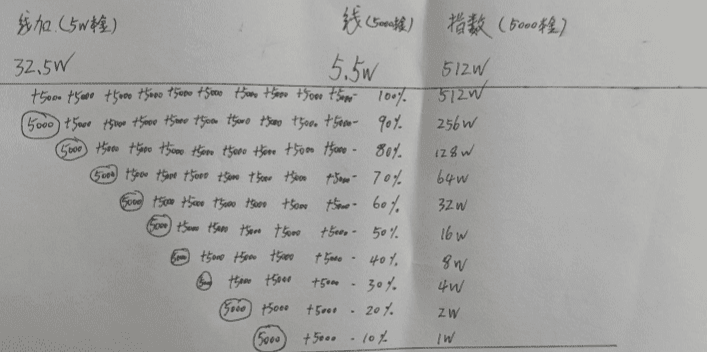 线加(5W本金) 线(5000本金) 指数(5000本金)
32.5W 5.5W 512W
+5000 +5000 +5000 +5000 +5000 +5000 +5000 +5000 +5000 +5000- 100% 512W
5000 +5000 +5000 +5000 +5000 +5000 +5000 +5000 +5000- 90% 256W
5000 +5000 +5000 +5000 +5000 +5000 +5000 +5000- 80% 128W
5000 +5000 +5000 +5000 +5000 +5000 +5000- 70% 64W
5000 +5000 +5000 +5000 +5000 +5000 +5000- 60% 32W
5000 +5000 +5000 +5000 +5000 +5000- 50% 16W
5000 +5000 +5000 +5000 +5000- 40% 8W
5000 +5000 +5000 +5000- 30% 4W
5000 +5000 +5000- 20% 2W
5000 +5000- 10% 1W